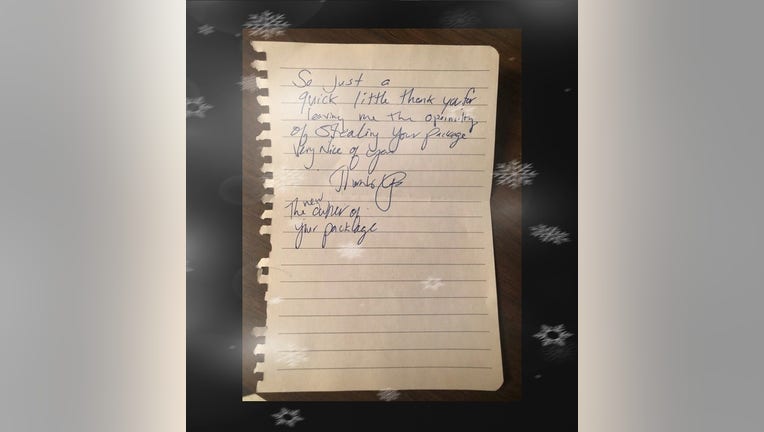 So Just a
quick little thank you for
leaving me the opernuity
of stealing your package
Very Nice of you
Thanks
new
The owner of
your package